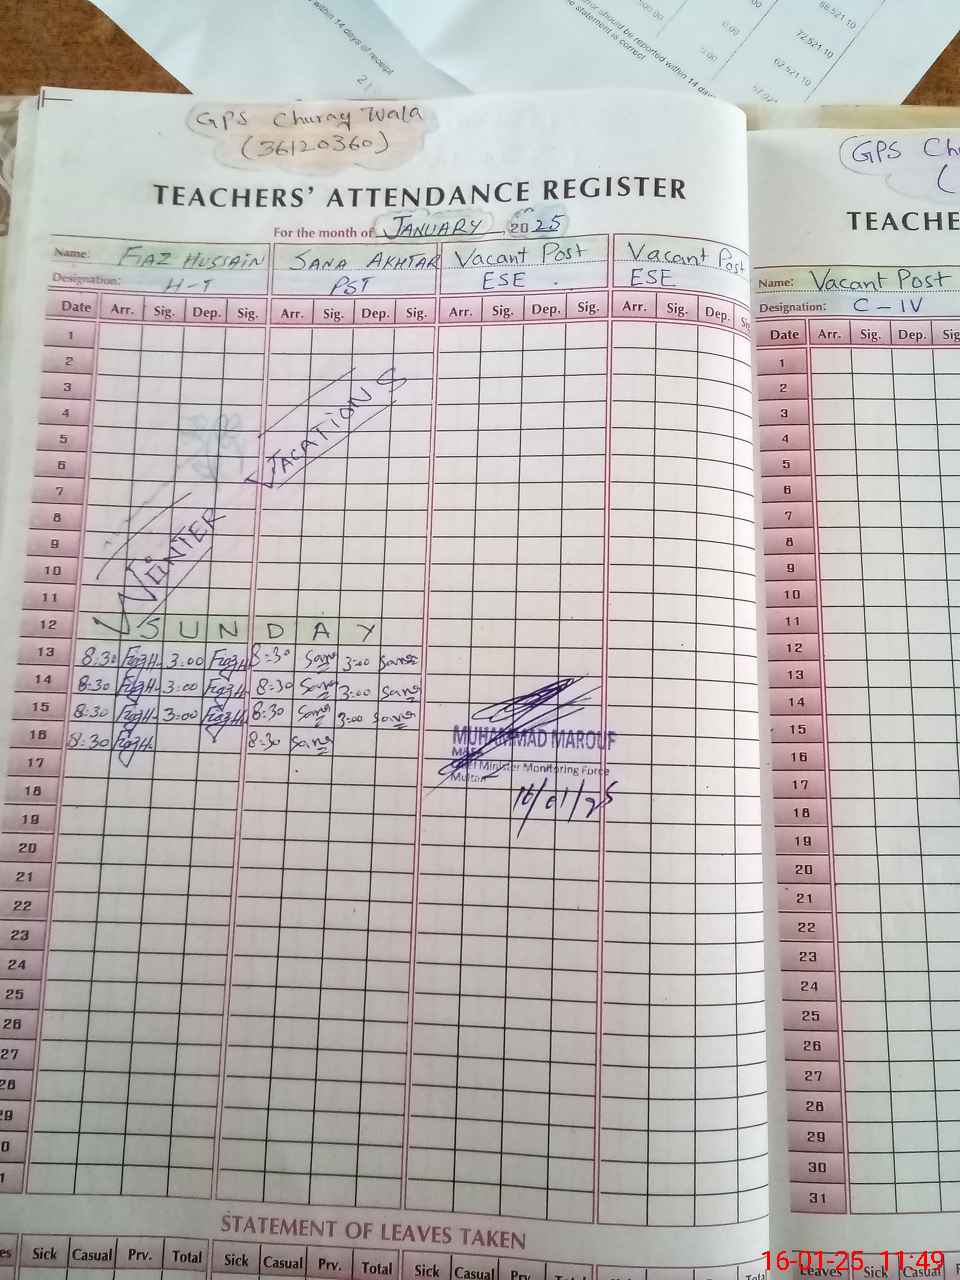 within 14 days of receipt
error should be reported within 14 days
the statement is correct
0.00
5.00
66,521.10
72,521.10
62,521.10
GPS Churay Wala
(36120360)
TEACHERS' ATTENDANCE REGISTER
For the month of JANUARY, 2025
Name: FIAZ HUSSAIN SANA AKHTAR Vacant Post Vacant Post
Designation: H-T PST ESE ESE
Date Arr. Sig. Dep. Sig. Arr. Sig. Dep. Sig. Arr. Sig. Dep. Sig. Arr. Sig. Dep.
1
2
3
4
5
6
7
8
9
10
11
WINTER VACATIONS
12 SUNDAY
13 8:30 FiazH. 3:00 FiazH. 8:30 Sana 3:00 Sana
14 8:30 FiazH. 3:00 FiazH. 8:30 Sana 3:00 Sana
15 8:30 FiazH. 3:00 FiazH. 8:30 Sana 3:00 Sana
16 8:30 FiazH. 8:30 Sana
17
18
19
20
21
22
23
24
25
26
27
28
29
0
1
MUHAMMAD MAROUF
Chief Minister Monitoring Force
Multan
16/01/25
STATEMENT OF LEAVES TAKEN
Sick Casual Prv. Total Sick Casual Prv. Total Sick Casual Prv. Total
GPS Ch
(
TEACHE
Name: Vacant Post
Designation: C-IV
Date Arr. Sig. Dep. Sig
1
2
3
4
5
6
7
8
9
10
11
12
13
14
15
16
17
18
19
20
21
22
23
24
25
26
27
28
29
30
31
Leaves Sick Casual
16-01-25 11:49